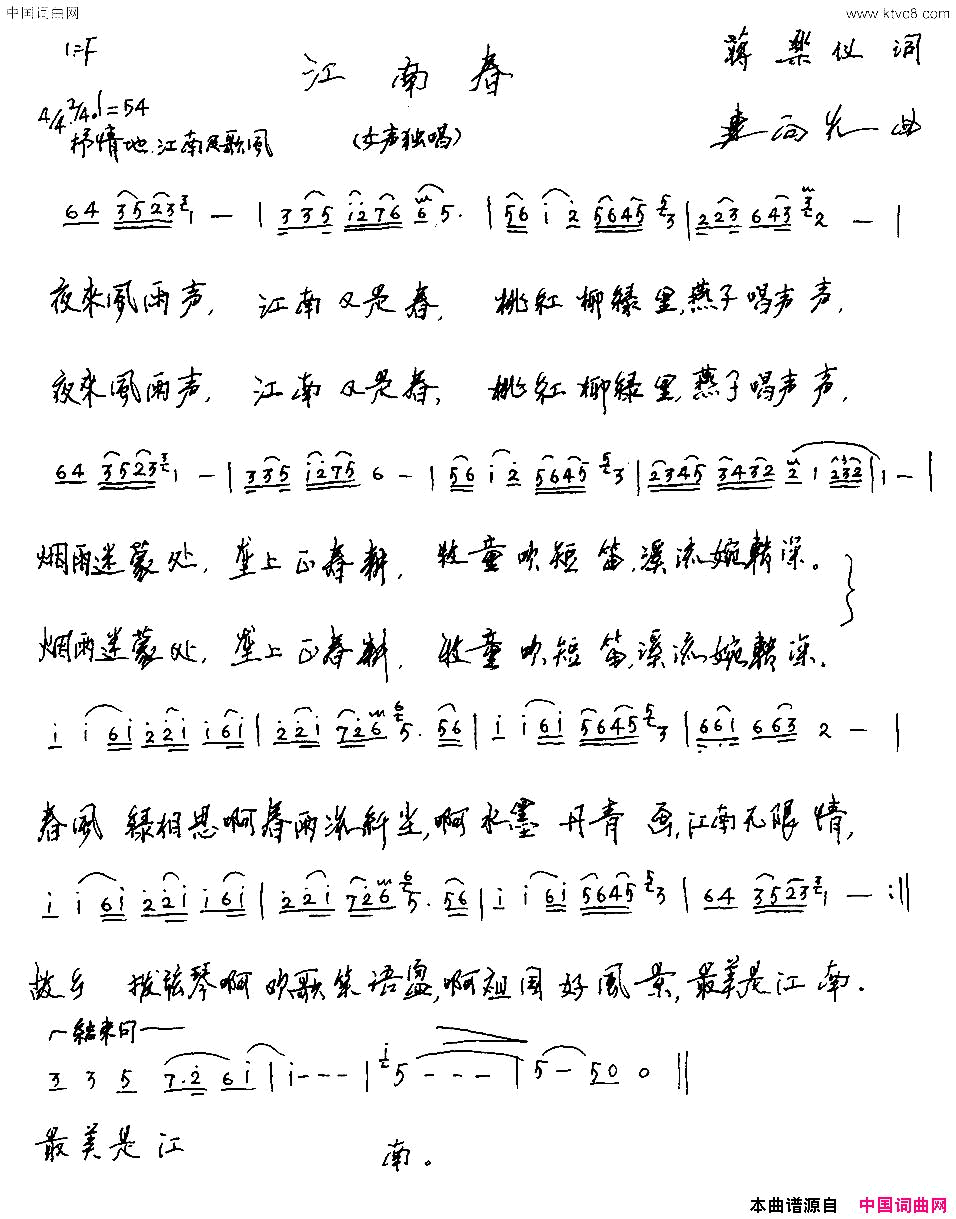 中国词曲网 www.ktvc8.com
1=F
江南春
蒋乐仪 词
4/4 2/4 ♩=54
抒情地.江南民歌风
(女声独唱)
曲
64 3523 1 — | 335 1276 65. | 56 1 2 5645 3 | 223 643 2 — |
夜來風雨声, 江南又是春, 桃紅柳緑里,燕子唱声声,
夜來風雨声, 江南又是春, 桃紅柳緑里,燕子唱声声,
64 3523 1 — | 335 1275 6 — | 56 1 2 5645 3 | 2345 3432 2 1 232 | 1 — |
烟雨迷蒙处, 垄上正春耕, 牧童吹短笛,溪流婉转深。
烟雨迷蒙处, 垄上正春耕, 牧童吹短笛,溪流婉转深.
i i 6i 22i i6i | 22i 726 5. 56 | i i 6i 5645 3 | 66i 663 2 — |
春風 緑相思啊春雨洗纤尘,啊水墨丹青画,江南无限情,
i i 6i 22i i6i | 22i 726 5. 56 | i i 6i 5645 3 | 64 3523 1 — :||
故乡 拨弦琴啊 欢歌笑语盈,啊祖国好風景,最美是江南.
结束句
3 3 5 7.2 6i | i - - - | 5 - - - | 5 — 50 0 ||
最美是江 南。
本曲谱源自 中国词曲网